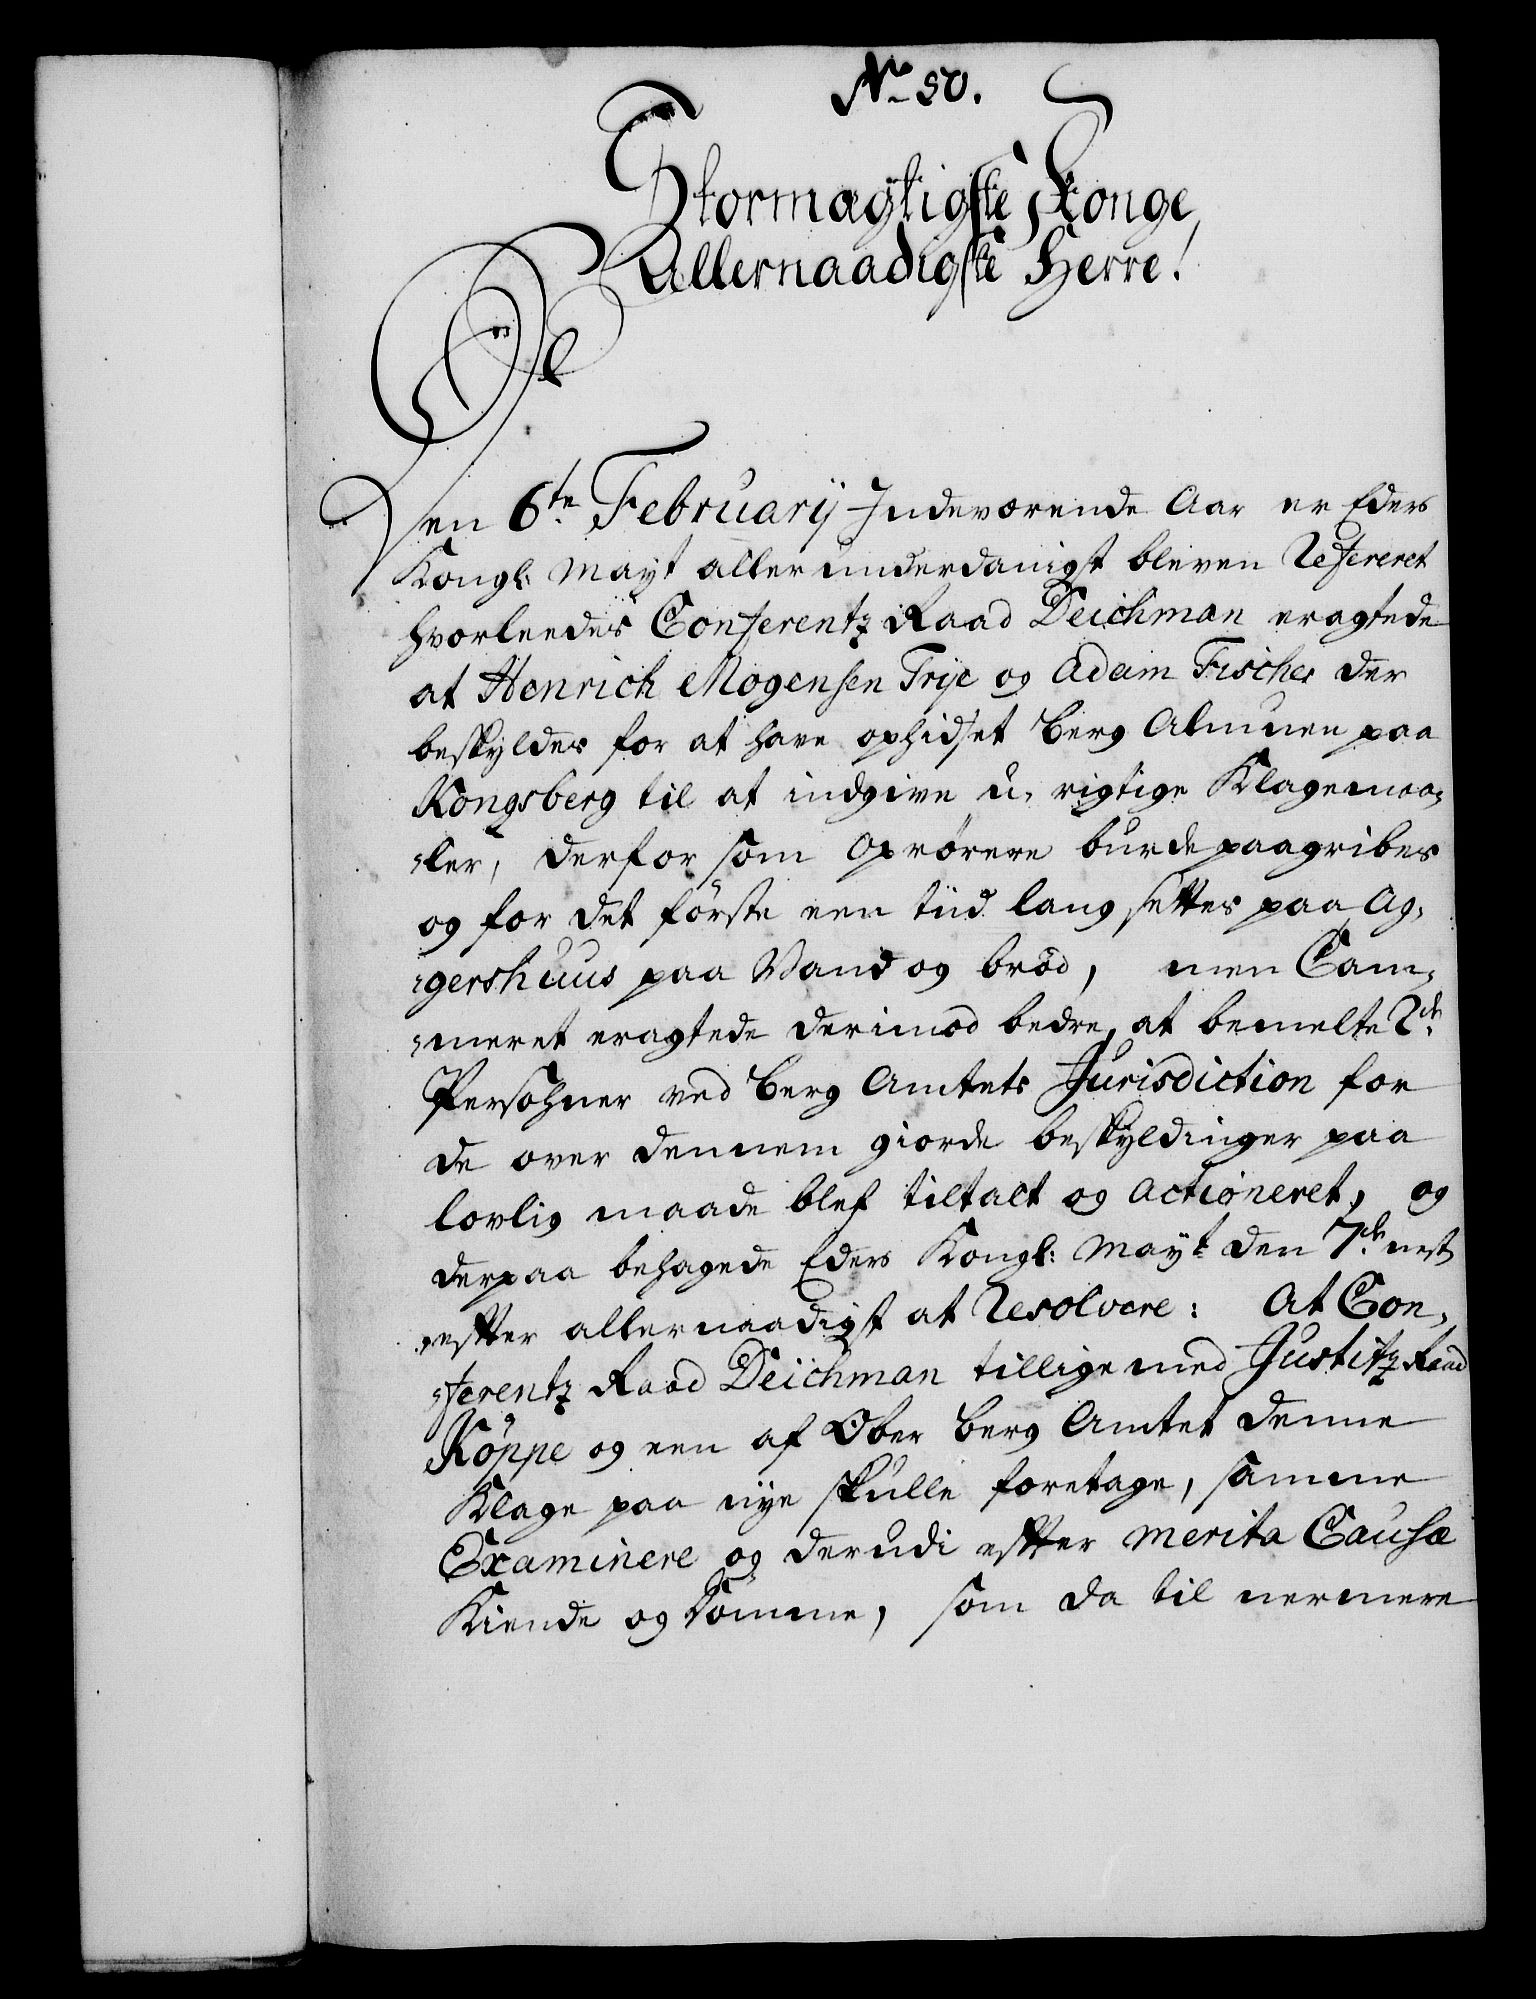 No 50.
Stormægtigste Konge,
Allernaadigste Herre!
Den 6te February Indeværende Aar er Eders
Kongl: Mayt allerunderdanigst bleven Refereret
hvorleedes Conferentz Raad Deichman eragtede
at Henrich Mogensen Trye og Adam Fischer der
beskyldes for at have ophidset Berg Almuen paa
Kongsberg til at indgive u-rigtige Klagemaa-
-ler, derfor som Oprørere burde paagribes
og for det förste een tiid lang settes paa Ag-
-gershuus paa Vand og bröd, men Cam-
-meret eragtede derimod bedre, at bemelte 2de
Persohner ved Berg Amtets Jurisdiction for
de over dennem giorde beskyldinger paa
lovlig maade blef tiltalt og actioneret, og
derpaa behagede Eders Kongl: Mayt den 7de nest
-efter allernaadigst at Resolvere: At Con-
-ferentz Raad Deichman tillige med Justitz Raad
Köppe og een af Ober Berg Amtet denne
Klage paa nye skulle foretage, samme
Examinere og derudi efter merita Causæ
Kiende og Dömme, som da til nermere